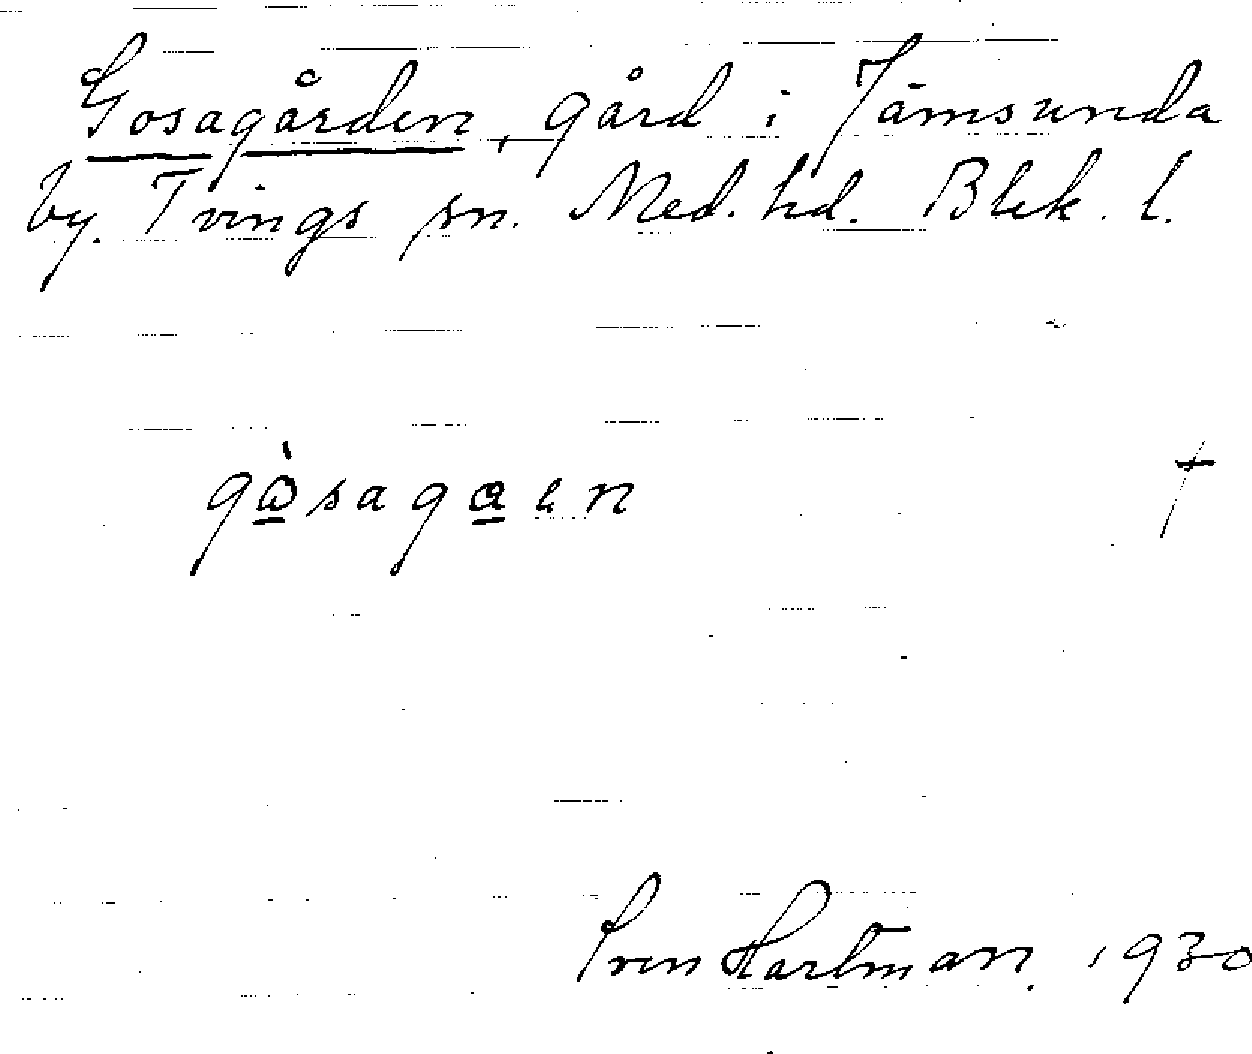 Gosagården, gård i Jämsunda
by. Tvings sn. Med. hd. Blek. l.
gòsagaen †
Sven Hartman. 1930